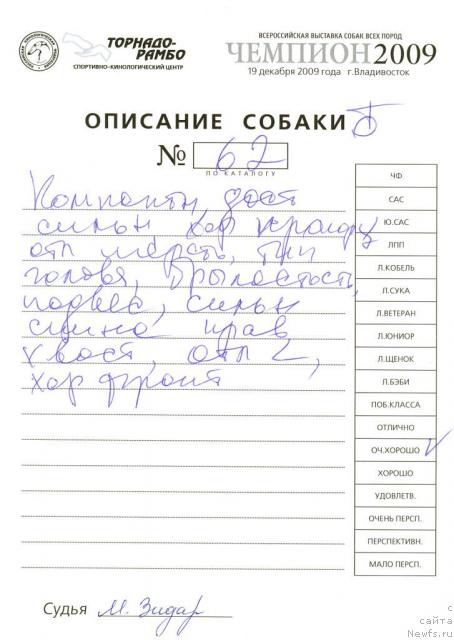 ВСЕРОССИЙСКАЯ ВЫСТАВКА СОБАК ВСЕХ ПОРОД
ТОРНАДО-РАМБО
СПОРТИВНО-КИНОЛОГИЧЕСКИЙ ЦЕНТР
ЧЕМПИОН2009
19 декабря 2009 года г.Владивосток
ОПИСАНИЕ СОБАКИ
№ 62
ПО КАТАЛОГУ
Компактн, дост
сильн хор
отл шерсть, тип
голова, брыластость,
подвес, сильн
спина прав
хвост, отл L,
хор фронт
ЧФ
САС
Ю.САС
ЛПП
Л.КОБЕЛЬ
Л.СУКА
Л.ВЕТЕРАН
Л.ЮНИОР
Л.ЩЕНОК
Л.БЭБИ
ПОБ.КЛАССА
ОТЛИЧНО
ОЧ.ХОРОШО
ХОРОШО
УДОВЛЕТВ.
ОЧЕНЬ ПЕРСП.
ПЕРСПЕКТИВН.
МАЛО ПЕРСП.
Судья М. Зидар
с
сайта
Newfs.ru